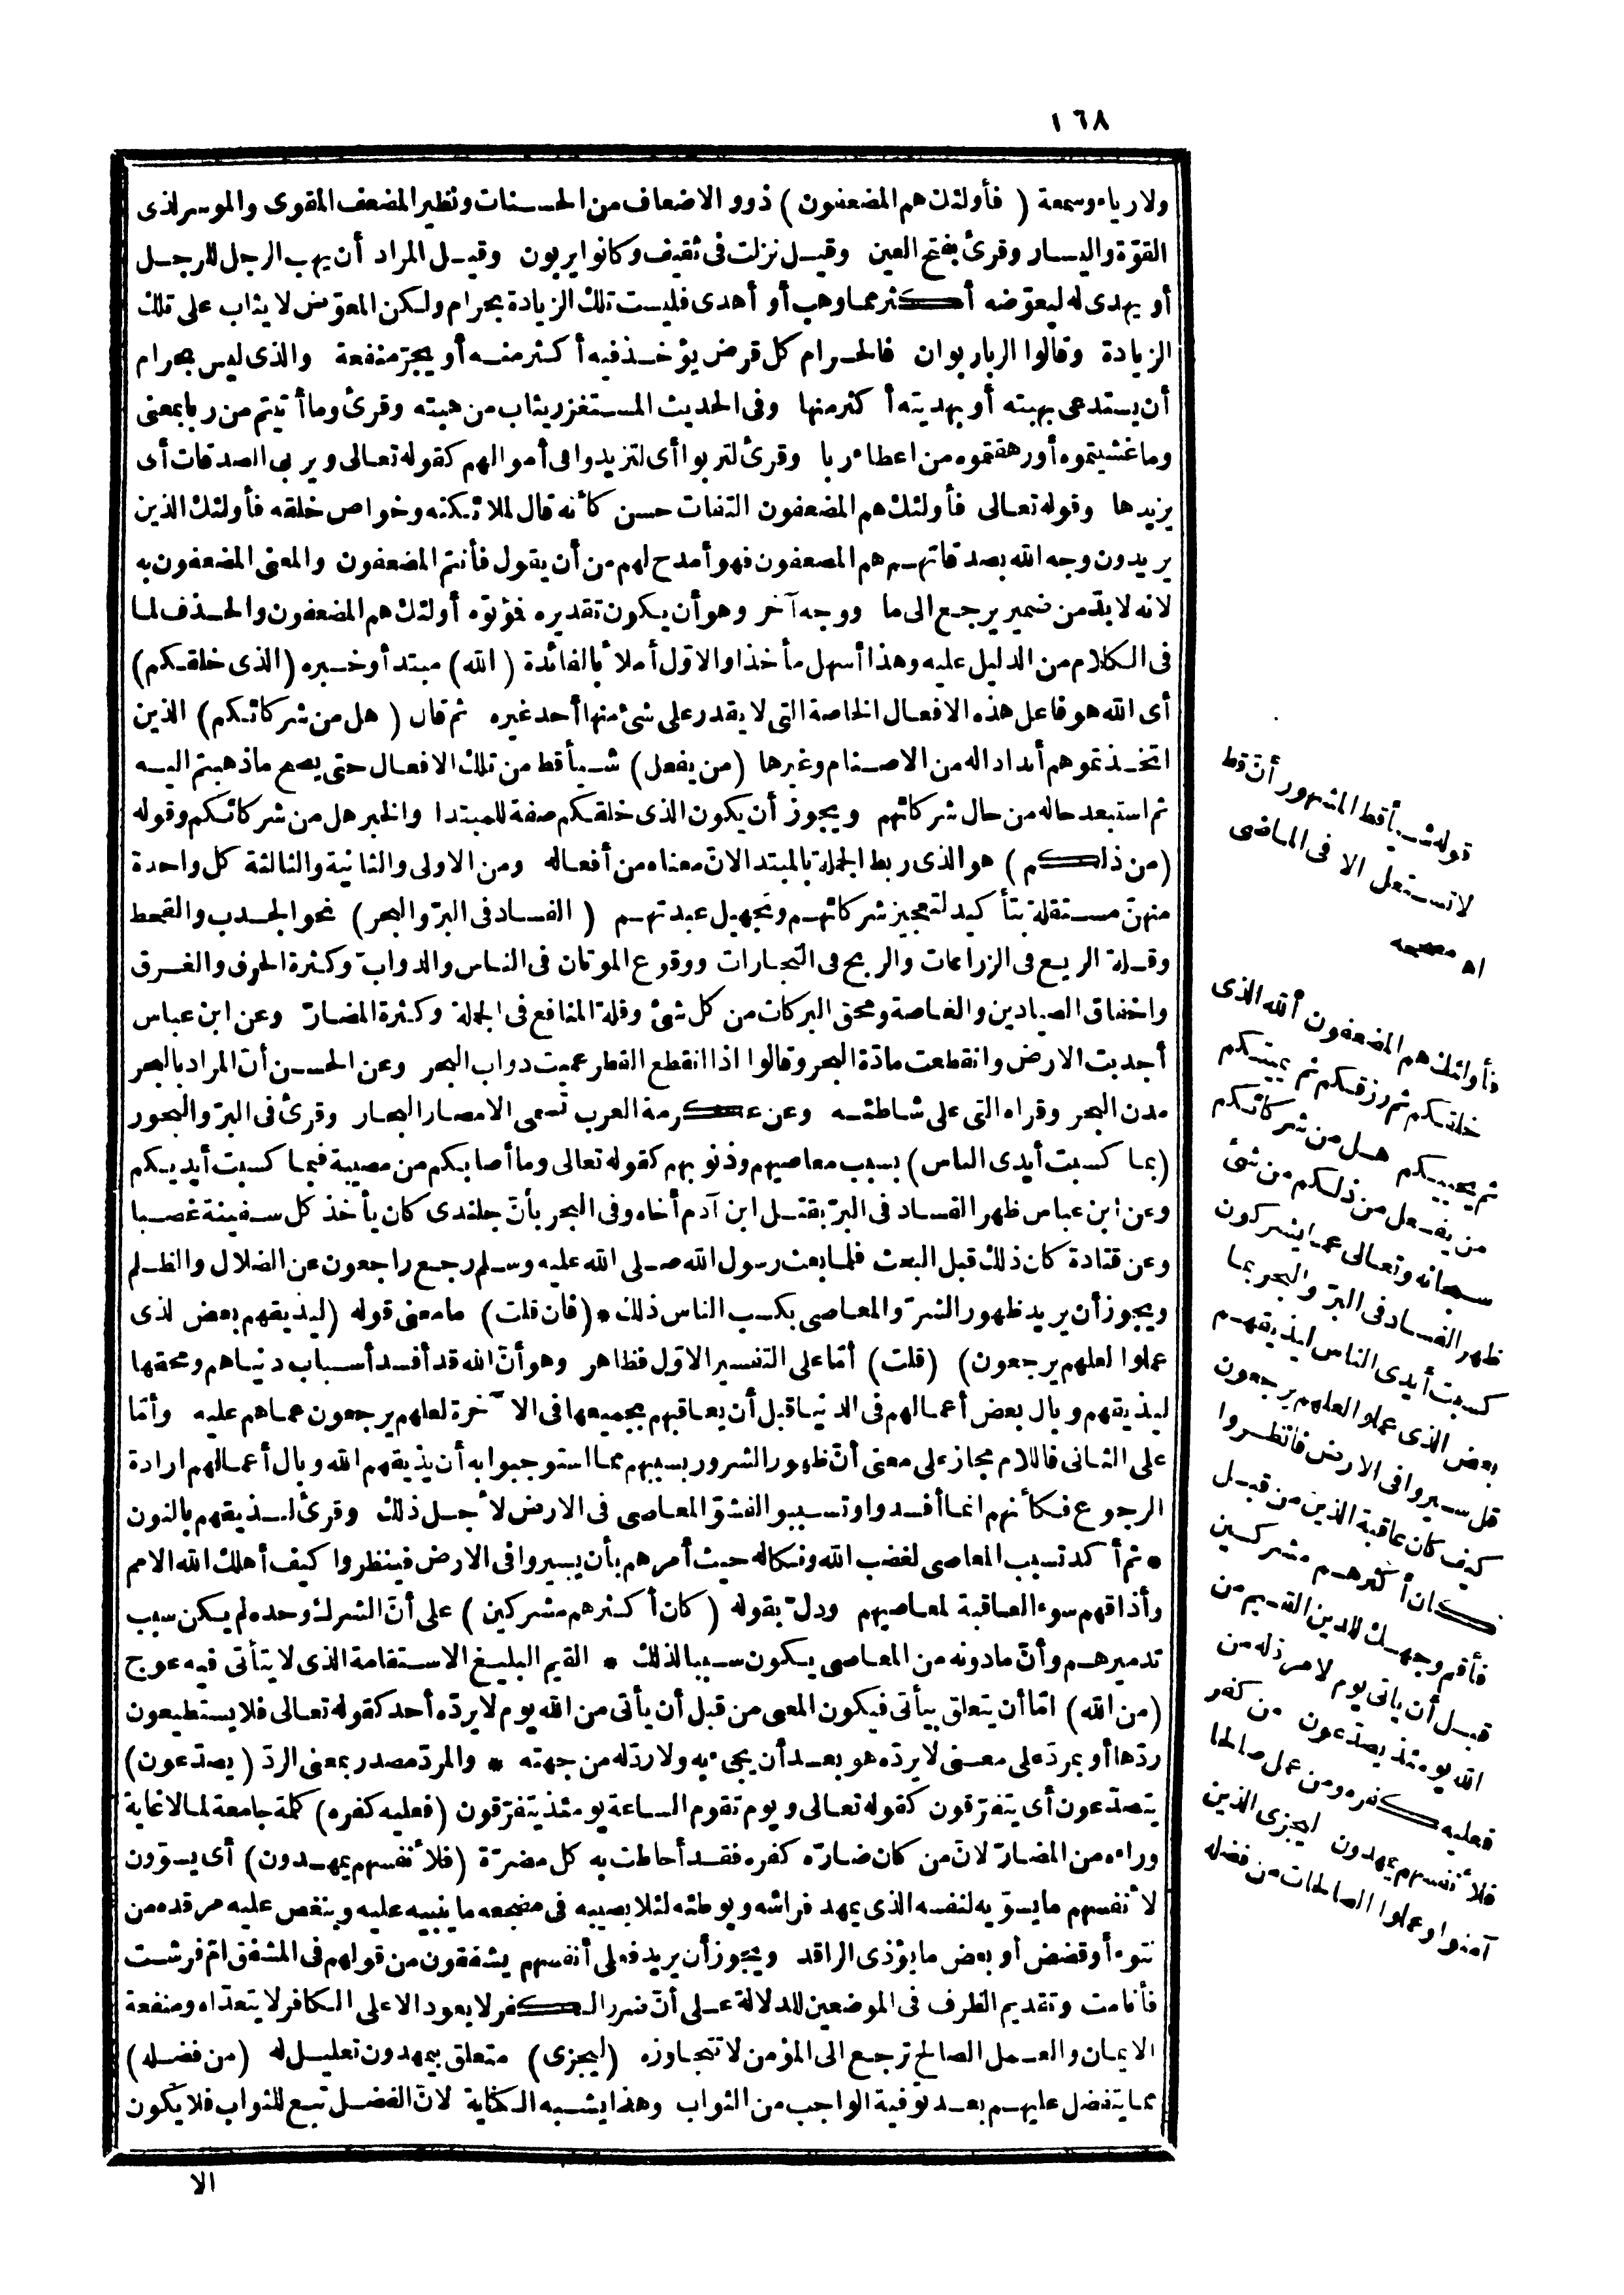 ١٦٨
ولا رياء وسمعة ( فأولئك هم المضعفون ) ذوو الاضعاف من الحسنات ونظير المضعف المقوى والموسر لذى
القوّة واليسار وقرئ بفتح العين وقيل نزلت فى ثقيف وكانوا يربون وقيل المراد أن يهب الرجل للرجل
أو يهدى له ليعوّضه أكثر مما وهب أو أهدى فليست تلك الزيادة بحرام ولكن المعوّض لا يثاب على تلك
الزيادة وقالوا الربا ربوان فالحرام كل قرض يؤخذ فيه أكثر منه أو يجرّ منفعة والذى ليس بحرام
أن يستدعى بهبته أو بهديته أكثر منها وفى الحديث المستغزر يثاب من هبته وقرئ وما أتيتم من ربا بمعنى
وما غشيتموه أو رهقتموه من اعطاء ربا وقرئ لتربوا أى لتزيدوا فى أموالهم كقوله تعالى ويربى الصدقات أى
يزيدها وقوله تعالى فأولئك هم المضعفون التفات حسن كأنه قال لملائكته وخواص خلقه فأولئك الذين
يريدون وجه الله بصدقاتهم هم المضعفون فهو أمدح لهم من أن يقول فأنتم المضعفون والمعنى المضعفون به
لانه لا بدّ من ضمير يرجع الى ما ووجه آخر وهو أن يكون تقديره فمؤتوه أولئك هم المضعفون والحذف لما
فى الكلام من الدليل عليه وهذا أسهل مأخذا والاوّل أملأ بالفائدة ( الله ) مبتدأ وخبره ( الذى خلقكم )
أى الله هو فاعل هذه الافعال الخاصة التى لا يقدر على شئ منها أحد غيره ثم قال ( هل من شركائكم ) الذين
اتخذتموهم أندادا له من الاصنام وغيرها ( من يفعل ) شيأ قط من تلك الافعال حتى يصح ما ذهبتم اليه
ثم استبعد حاله من حال شركائهم ويجوز أن يكون الذى خلقكم صفة للمبتدا والخبر هل من شركائكم وقوله
( من ذلكم ) هو الذى ربط الجملة بالمبتدا لانّ معناه من أفعاله ومن الاولى والثانية والثالثة كل واحدة
منهنّ مستقلة بتأكيد لتعجيز شركائهم وتجهيل عبدتهم ( الفساد فى البرّ والبحر ) نحو الجدب والقحط
وقلة الريع فى الزراعات والربح فى التجارات ووقوع الموتان فى الناس والدوابّ وكثرة الحرق والغرق
واخفاق الصيادين والغاصة ومحق البركات من كل شئ وقلة المنافع فى الجملة وكثرة المضارّ وعن ابن عباس
أجدبت الارض وانقطعت مادّة البحر وقالوا اذا انقطع القطر عميت دواب البحر وعن الحسن أنّ المراد بالبحر
مدن البحر وقراه التى على شاطئه وعن عكرمة العرب تسمى الامصار البحار وقرئ فى البرّ والبحور
( بما كسبت أيدى الناس ) بسبب معاصيهم وذنوبهم كقوله تعالى وما أصابكم من مصيبة فبما كسبت أيديكم
وعن ابن عباس ظهر الفساد فى البرّ بقتل ابن آدم أخاه وفى البحر بأنّ جلندى كان يأخذ كل سفينة غصبا
وعن قتادة كان ذلك قبل البعث فلما بعث رسول الله صلى الله عليه وسلم رجع راجعون عن الضلال والظلم
ويجوز أن يريد ظهور الشرّ والمعاصى بكسب الناس ذلك * ( فان قلت ) ما معنى قوله ( ليذيقهم بعض لذى
عملوا لعلهم يرجعون ) ( قلت ) أمّا على التفسير الاوّل فظاهر وهو أنّ الله قد أفسد أسباب دنياهم ومحقها
ليذيقهم وبال بعض أعمالهم فى الدنيا قبل أن يعاقبهم بجميعها فى الآخرة لعلهم يرجعون عما هم عليه وأمّا
على الثانى فاللام مجاز على معنى أنّ ظهور الشرور بسببهم مما استوجبوا به أن يذيقهم الله وبال أعمالهم ارادة
الرجوع فكأنهم انما أفسدوا وتسببوا لفشوّ المعاصى فى الارض لأجل ذلك وقرئ لنذيقهم بالنون
* ثم أكد تسبب المعاصى لغضب الله ونكاله حيث أمرهم بأن يسيروا فى الارض فينظروا كيف أهلك الله الامم
وأذاقهم سوء العاقبة لمعاصيهم ودلّ بقوله ( كان أكثرهم مشركين ) على أنّ الشرك وحده لم يكن سبب
تدميرهم وأنّ ما دونه من المعاصى يكون سببا لذلك * القيم البليغ الاستقامة الذى لا يتأتى فيه عوج
( من الله ) امّا أن يتعلق بيأتى فيكون المعنى من قبل أن يأتى من الله يوم لا يردّه أحد كقوله تعالى فلا يستطيعون
ردّها أو بمردّ على معنى لا يردّه هو بعد أن يجئ به ولا ردّ له من جهته * والمردّ مصدر بمعنى الردّ ( يصدّعون )
يتصدّعون أى يتفرّقون كقوله تعالى ويوم تقوم الساعة يومئذ يتفرّقون ( فعليه كفره ) كلمة جامعة لما لا غاية
وراءه من المضارّ لانّ من كان ضارّه كفره فقد أحاطت به كل مضرّة ( فلأنفسهم يمهدون ) أى يسوّون
لأنفسهم ما يسوّيه لنفسه الذى يمهد فراشه ويوطئه لئلا يصيبه فى مضجعه ما ينبيه عليه وينغص عليه مرقده من
نتوء أو قضض أو بعض ما يؤذى الراقد ويجوز أن يريد فعلى أنفسهم يشفقون من قولهم فى المشفق امّ فرشت
فأنامت وتقديم الظرف فى الموضعين للدلالة على أنّ ضرر الكفر لا يعود الا على الكافر لا يتعدّاه ومنفعة
الايمان والعمل الصالح ترجع الى المؤمن لا تتجاوزه ( ليجزى ) متعلق بيمهدون تعليل له ( من فضله )
مما يتفضل عليهم بعد توفية الواجب من الثواب وهذا يشبه الكناية لانّ الفضل تبع للثواب فلا يكون
الا
قوله شيأ قط المشهور أن قط
لا تستعمل الا فى الماضى
اه مصححه
فأولئك هم المضعفون ألله الذى
خلقكم ثم رزقكم ثم يميتكم
ثم يحييكم هل من شركائكم
من يفعل من ذلكم من شئ
سبحانه وتعالى عما يشركون
ظهر الفساد فى البرّ والبحر بما
كسبت أيدى الناس ليذيقهم
بعض الذى عملوا لعلهم يرجعون
قل سيروا فى الارض فانظروا
كيف كان عاقبة الذين من قبل
كان أكثرهم مشركين
فأقم وجهك للدين القيم من
قبل أن يأتى يوم لا مردّ له من
الله يومئذ يصدّعون من كفر
فعليه كفره ومن عمل صالحا
فلأنفسهم يمهدون ليجزى الذين
آمنوا وعملوا الصالحات من فضله